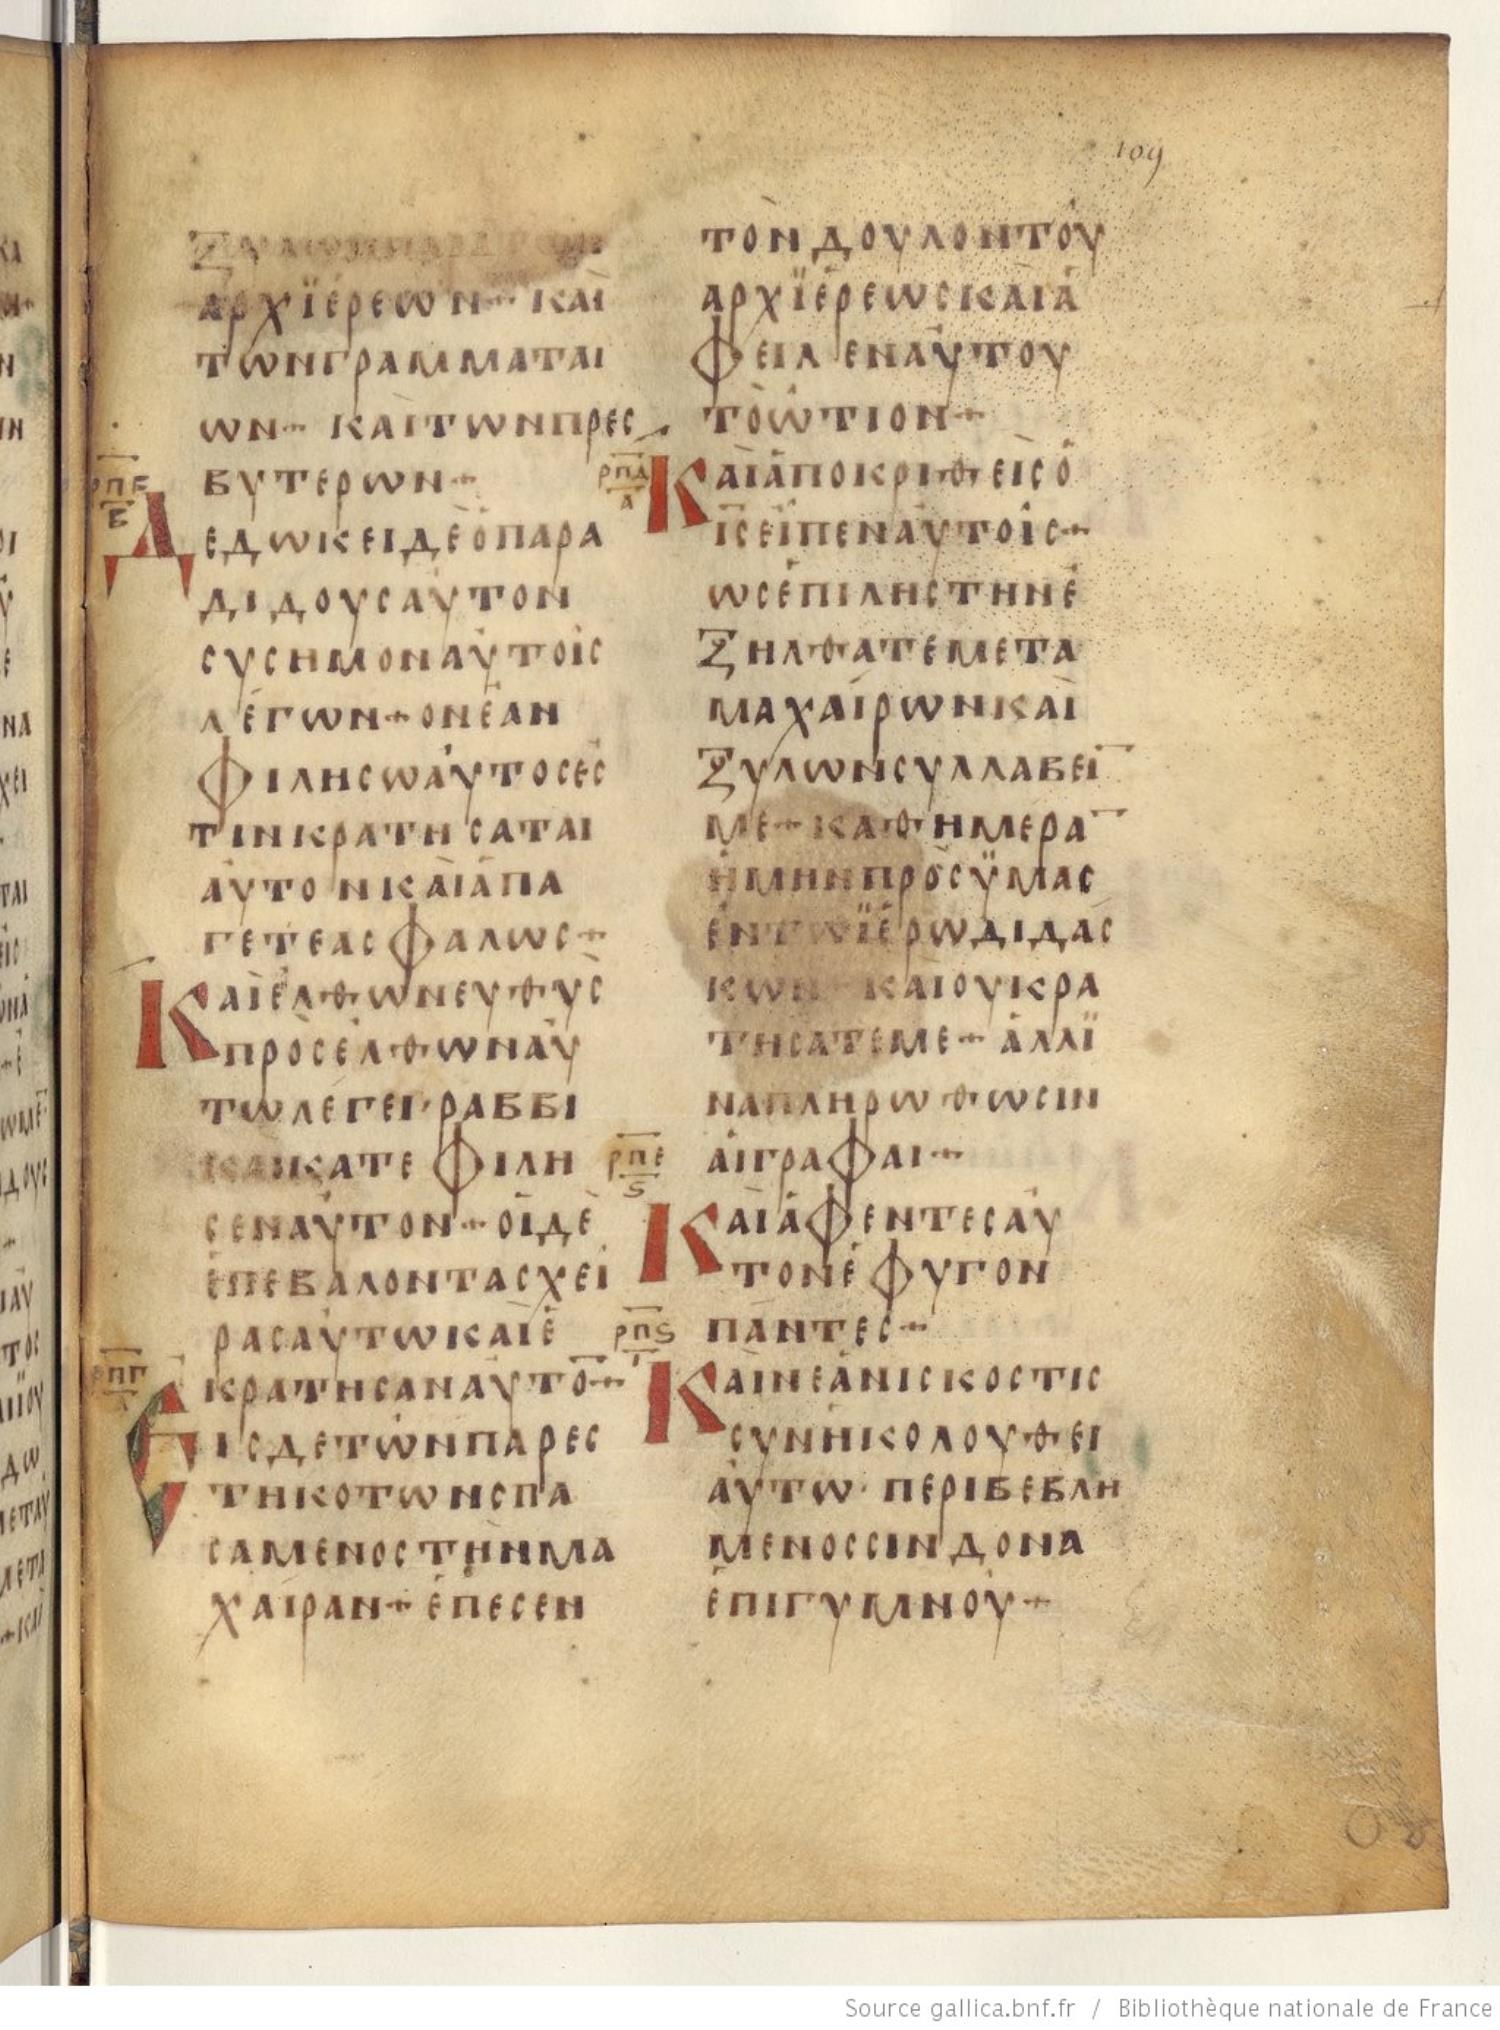 109
ΞΥΛΩΝΠΑΡΑΤΩΝ
ΑΡΧΪΕΡΕΩΝ+ ΚΑΙ
ΤΩΝΓΡΑΜΜΑΤΑΙ
ΩΝ+ ΚΑΙΤΩΝΠΡΕΣ
ΒΥΤΕΡΩΝ+
ΡΠΒ
Β
ΔΕΔΩΚΕΙΔΕΟΠΑΡΑ
ΔΙΔΟΥΣΑΥΤΟΝ
ΣΥΣΗΜΟΝΑΥΤΟΙΣ
ΛΕΓΩΝ+ΟΝΕΑΝ
ΦΙΛΗΣΩΑΥΤΟΣΕΣ
ΤΙΝΚΡΑΤΗΣΑΤΑΙ
ΑΥΤΟΝΚΑΙΑΠΑ
ΓΕΤΕΑΣΦΑΛΩΣ+
ΚΑΙΕΛΘΩΝΕΥΘΥΣ
ΠΡΟΣΕΛΘΩΝΑΥ
ΤΩΛΕΓΕΙ·ΡΑΒΒΙ
ΚΑΙΚΑΤΕΦΙΛΗ
ΣΕΝΑΥΤΟΝ+ΟΙΔΕ
ΕΠΕΒΑΛΟΝΤΑΣΧΕΙ
ΡΑΣΑΥΤΩΚΑΙΕ
ΚΡΑΤΗΣΑΝΑΥΤΟ̅+
ΡΠΓ
ΕΙΣΔΕΤΩΝΠΑΡΕΣ
ΤΗΚΟΤΩΝΣΠΑ
ΣΑΜΕΝΟΣΤΗΝΜΑ
ΧΑΙΡΑΝ+ΕΠΕΣΕΝ
ΤΟΝΔΟΥΛΟΝΤΟΥ
ΑΡΧΪΕΡΕΩΣΚΑΙΑ
ΦΕΙΛΕΝΑΥΤΟΥ
ΤΟΩΤΙΟΝ+
ΡΠΔ
Α
ΚΑΙΑΠΟΚΡΙΘΕΙΣΟ
Ι̅Σ̅ΕΙΠΕΝΑΥΤΟΙΣ+
ΩΣΕΠΙΛΗΣΤΗΝΕ
ΞΗΛΘΑΤΕΜΕΤΑ
ΜΑΧΑΙΡΩΝΚΑΙ
ΞΥΛΩΝΣΥΛΛΑΒΕΙ̅
ΜΕ+ΚΑΘΗΜΕΡΑ̅
ΗΜΗΝΠΡΟΣΫΜΑΣ
ΕΝΤΩΪΕΡΩΔΙΔΑΣ
ΚΩΝ ΚΑΙΟΥΚΡΑ
ΤΗΣΑΤΕΜΕ+ ΑΛΛΪ
ΝΑΠΛΗΡΩΘΩΣΙΝ
ΑΙΓΡΑΦΑΙ+
ΡΠΕ
Ϛ
ΚΑΙΑΦΕΝΤΕΣΑΥ
ΤΟΝΕΦΥΓΟΝ
ΠΑΝΤΕΣ+
ΡΠϚ
Ι
ΚΑΙΝΕΑΝΙΣΚΟΣΤΙΣ
ΣΥΝΗΚΟΛΟΥΘΕΙ
ΑΥΤΩ·ΠΕΡΙΒΕΒΛΗ
ΜΕΝΟΣΣΙΝΔΟΝΑ
ΕΠΙΓΥΜΝΟΥ+
Source gallica.bnf.fr / Bibliothèque nationale de France